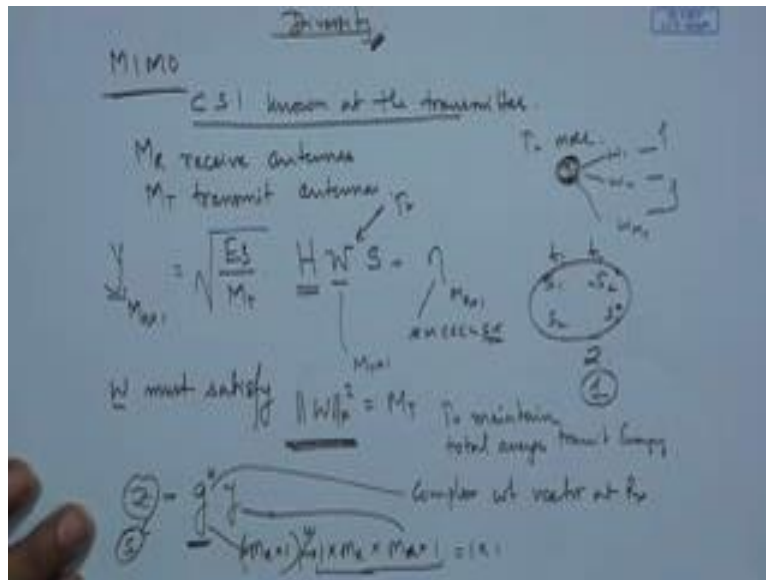 Diversity
MIMO
CSI known at the transmitter.
MR receive antennas
MT transmit antennas
Tx
y = √(Es/MT) H W S + η
MR×1
MR×1
MT×1
t1 t2
S1 -S2*
S2 S1*
2
1
W must satisfy ||W||F² = MT To maintain
total average transmit Energy
Z = g^H y Complex wt vector at Rx
(MR×1)^H 1×MR × MR×1 = 1×1